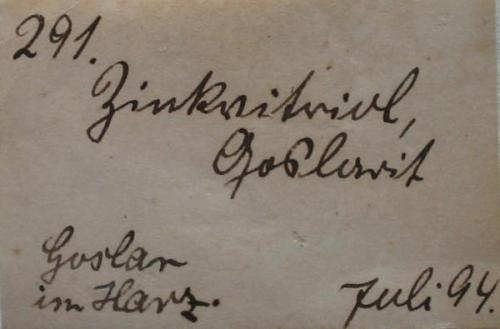 291.
Zinkvitriol,
Goslarit
Goslar
im Harz.
Juli 94.